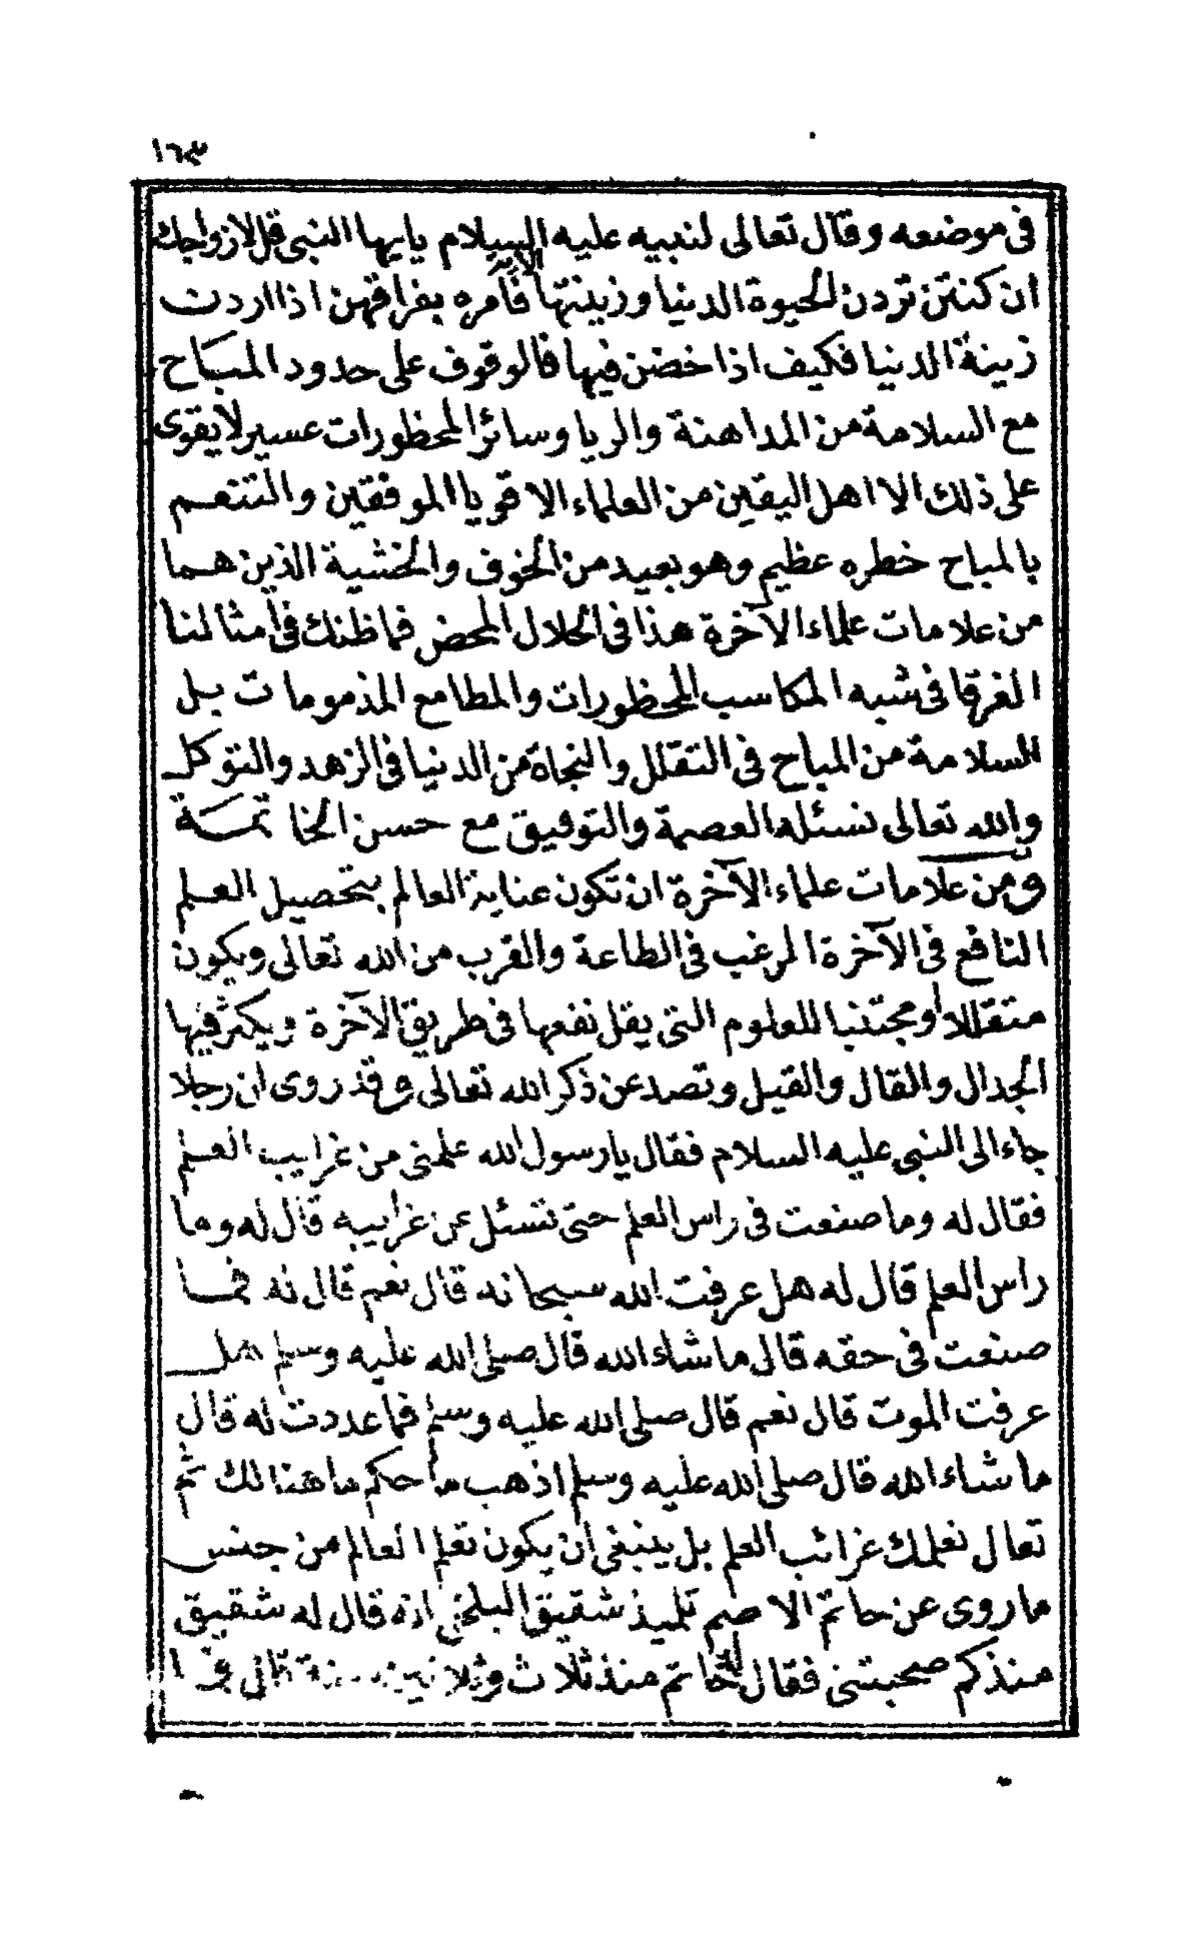 ١٦٣
فى موضعه وقال تعالى لنبيه عليه السلام يايها النبى قل لازواجك
ان كنتن تردن الحيوة الدنيا وزينتها الاية فأمره بفراقهن اذا اردت
زينة الدنيا فكيف اذا خضن فيها فالوقوف على حدود المباح
مع السلامة من المداهنة والريا وسائر المحظورات عسير لا يقوى
على ذلك الا اهل اليقين من العلماء الاقويا الموفقين والتنعم
بالمباح خطره عظيم وهو بعيد من الخوف والخشية الذين هما
من علامات علماء الآخرة هذا فى الحلال المحض فما ظنك فى أمثالنا
الغرقا فى شبه المكاسب المحظورات والمطامع المذمومات بل
السلامة من المباح فى التقلل والنجاة من الدنيا فى الزهد والتوكل
والله تعالى نسئله العصمة والتوفيق مع حسن الخاتمة
ومن علامات علماء الآخرة ان تكون عناية العالم بتحصيل العلم
النافع فى الآخرة المرغب فى الطاعة والقرب من الله تعالى ويكون
متقللا او مجتنبا للعلوم التى يقل نفعها فى طريق الآخرة ويكثر فيها
الجدال والقال والقيل وتصد عن ذكر الله تعالى وقد روى ان رجلا
جاء الى النبى عليه السلام فقال يا رسول الله علمنى من غرايب العلم
فقال له وما صنعت فى راس العلم حتى تسئل عن غرايبه قال له وما
راس العلم قال له هل عرفت الله سبحانه قال نعم قال له فما
صنعت فى حقه قال ما شاء الله قال صلى الله عليه وسلم هل
عرفت الموت قال نعم قال صلى الله عليه وسلم فما عددت له قال
ما شاء الله قال صلى الله عليه وسلم اذهب ما حكم ما هنالك ثم
تعال نعلمك غرائب العلم بل ينبغى ان يكون تعلم العالم من جنس
ما روى عن حاتم الاصم تلميذ شقيق البلخى انه قال له شقيق
منذ كم صحبتنى فقال له حاتم منذ ثلاث وثلاثين سنة قال فما